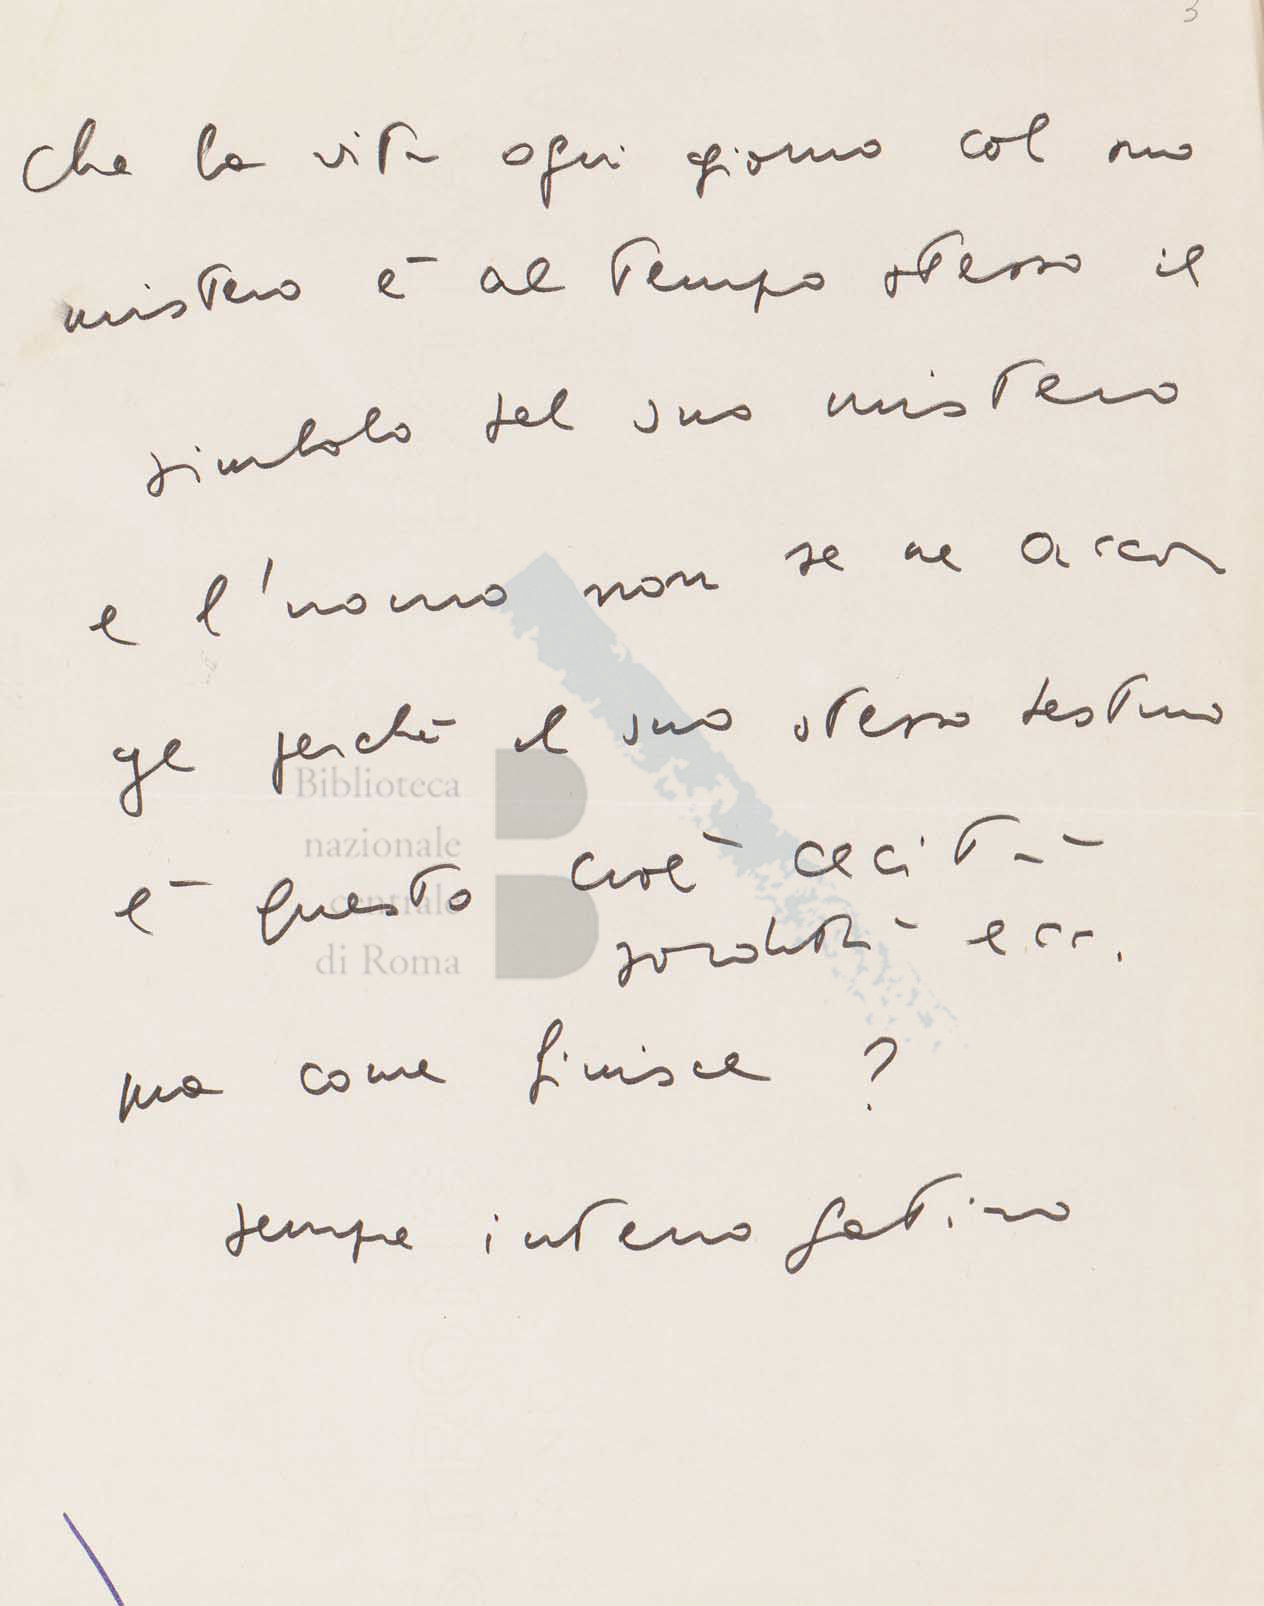 3
Che la vita ogni giorno col suo
mistero è al tempo stesso il
simbolo del suo mistero
e l'uomo non se ne accor
ge perché il suo stesso destino
è questo cioè cecità
sordità ecc.
ma come finisce ?
sempre interrogativo
Biblioteca
nazionale
centrale
di Roma